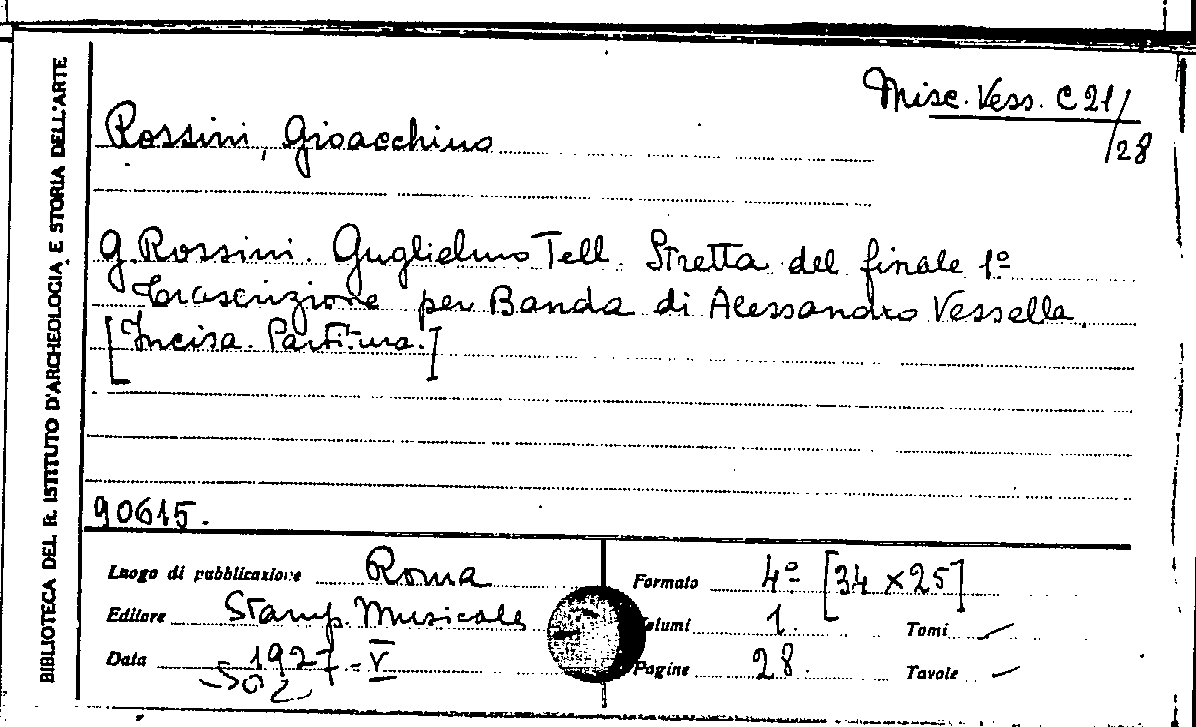 BIBLIOTECA DEL R. ISTITUTO D'ARCHEOLOGIA E STORIA DELL'ARTE
Misc. Vess. C 21/
/28
Rossini, Gioacchino
G. Rossini. Guglielmo Tell. Stretta del finale 1º
Trascrizione per Banda di Alessandro Vessella.
[Incisa. Partitura.]
90615.
Luogo di pubblicazione Roma
Formato 4º [34 x 25]
Editore Stamp. Musicale
Volumi 1. Tomi —
Data 1927 - V
Pagine 28. Tavole —
502